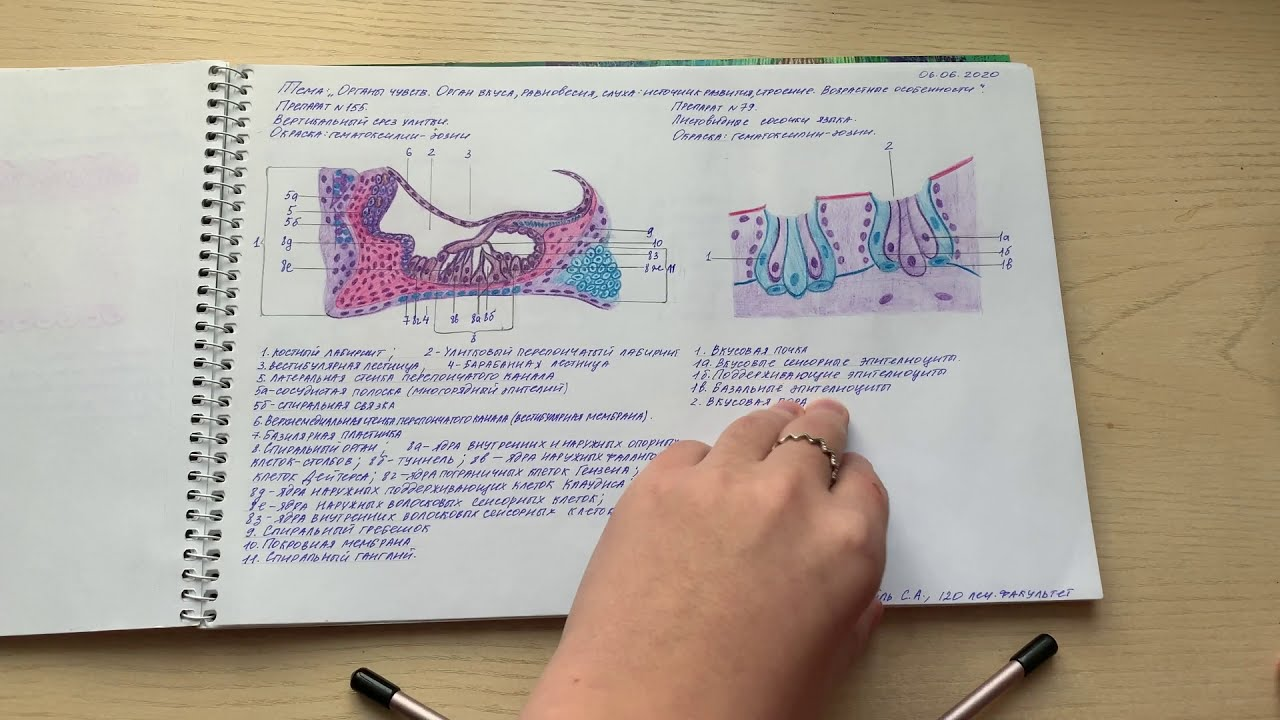 06.06.2020
Тема „Органы чувств. Орган вкуса, равновесия, слуха: источник развития, строение. Возрастные особенности".
Препарат №155.
Вертикальный срез улитки.
Окраска: гематоксилин-эозин
6 2 3
5а
5
5б
1 8д
8е
9
10
8з
8ж 11
7 8г 4 8в 8а 8б
8
1. Костный лабиринт; 2- Улитковый перепончатый лабиринт
3. Вестибулярная лестница, 4- Барабанная лестница
5. Латеральная стенка перепончатого канала
5а- сосудистая полоска (многорядный эпителий)
5б- спиральная связка
6. Верхнемедиальная стенка перепончатого канала (вестибулярная мембрана).
7. Базилярная пластинка
8. Спиральный орган: 8а- ядра внутренних и наружных опорных
клеток-столбов; 8б- туннель; 8в - ядра наружных фаланго
клеток Дейтерса; 8г- ядра пограничных клеток Гензена;
8д- ядра наружных поддерживающих клеток Клаудиса
8е- ядра наружных волосковых сенсорных клеток;
8з- ядра внутренних волосковых сенсорных клеток
9. Спиральный гребешок
10. Покровная мембрана
11. Спиральный ганглий.
Препарат №79.
Листовидные сосочки языка.
Окраска: гематоксилин-эозин.
2
1
1а
1б
1в
1. Вкусовая почка
1а. Вкусовые сенсорные эпителиоциты.
1б. Поддерживающие эпителиоциты
1в. Базальные эпителиоциты
2. Вкусовая пора
С.А., 120 леч. факультет